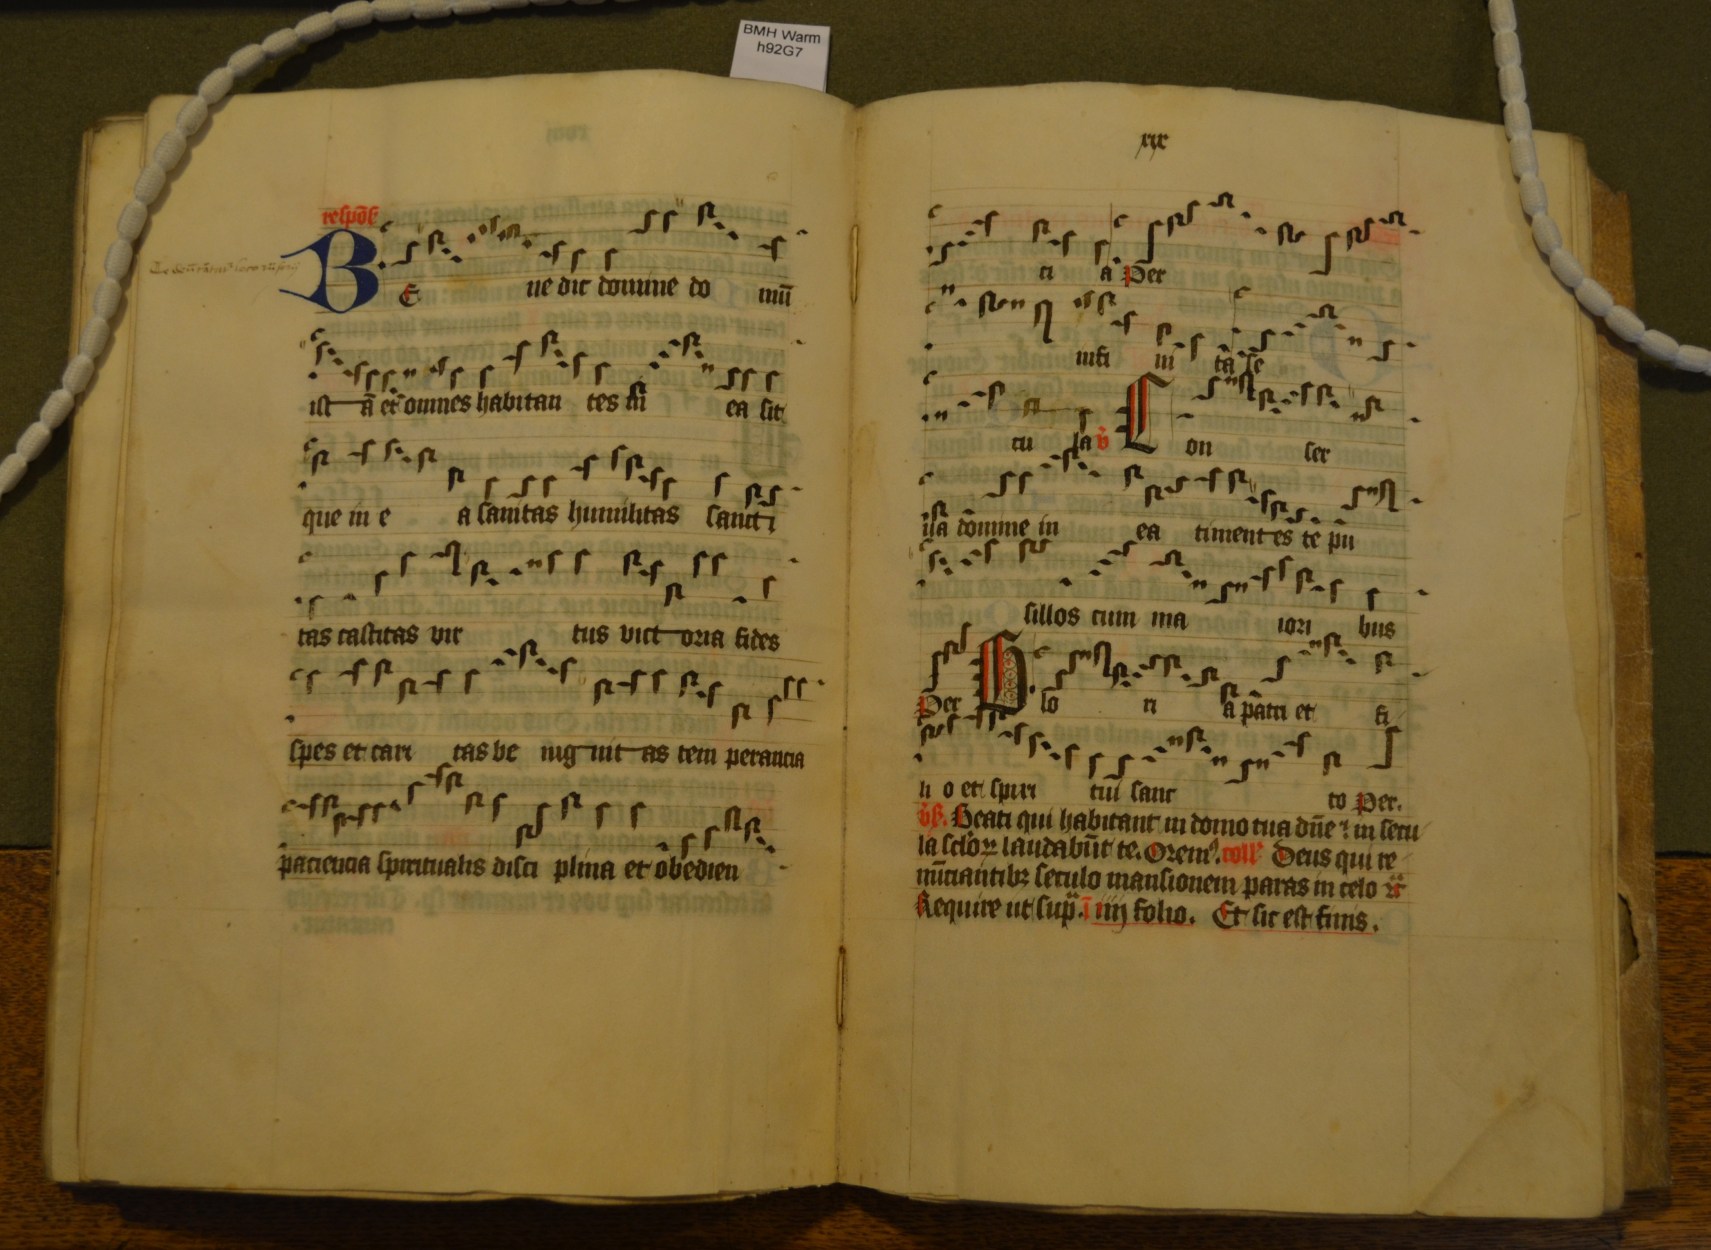 BMH Warm
h92G7
respōs
BE ne dic domine do mū
ist ā et omnes habitan tes in ea sit
que in e a sanitas humilitas sancti
tas castitas vir tus vict oria fides
spes et cari tas be nig nit as tem perancia
paciencia spiritualis disci plina et obedien
xix
ti a Per
infi ni ta se
cu la v̄ Con ser
ua domine in ea timentes te pu
sillos cum ma iori bus
Per Glo ri a patri et fi
li o et spiri tui sanc to Per.
v̄s. Beati qui habitant in domo tua dn̄e ⁊ in secu
la sclo℞ laudabūt te. Orem⁹. coll' Deus qui re
nūciantibꝫ seculo mansionem paras in celo ⁊c̄
Require ut sup̄. ī iiij folio. Et sic est finis.